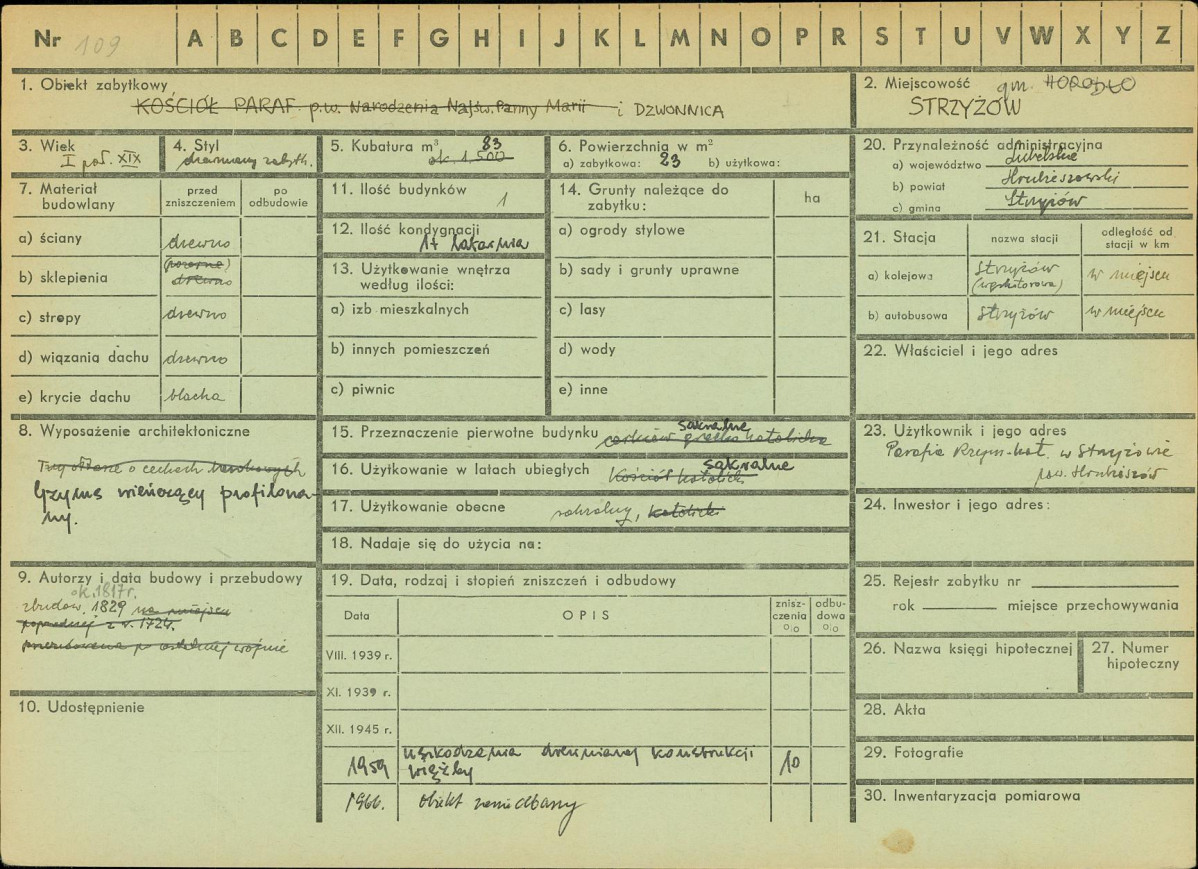 Nr 109 A B C D E F G H I J K L M N O P R S T U V W X Y Z
1. Obiekt zabytkowy
KOŚCIÓŁ PARAF. p.w. Narodzenia Najśw. Panny Marii i DZWONNICA
2. Miejscowość gm. HORODŁO
STRZYŻÓW
3. Wiek
I poł. XIX
4. Styl
drewniany zabytk.
5. Kubatura m³ 83
ok. 1.500
6. Powierzchnia w m²
a) zabytkowa: 23 b) użytkowa:
7. Materiał budowlany
przed zniszczeniem
po odbudowie
a) ściany drewno
b) sklepienia (pozorne) drewno
c) stropy drewno
d) wiązania dachu drewno
e) krycie dachu blacha
8. Wyposażenie architektoniczne
Trzy ołtarze o cechach barokowych
Gzyms wieńczący profilowa-
ny.
9. Autorzy i data budowy i przebudowy
ok. 1817 r.
zbudow. 1829 na miejscu
poprzedniej z r. 1724.
po ostatniej wojnie
10. Udostępnienie
11. Ilość budynków 1
12. Ilość kondygnacji
1+ latarnia
13. Użytkowanie wnętrza
według ilości:
a) izb mieszkalnych
b) innych pomieszczeń
c) piwnic
14. Grunty należące do
zabytku:
ha
a) ogrody stylowe
b) sady i grunty uprawne
c) lasy
d) wody
e) inne
15. Przeznaczenie pierwotne budynku sakralne
cerkiew grecko katolicka
16. Użytkowanie w latach ubiegłych sakralne
Kościół katolicki
17. Użytkowanie obecne sakralny, katolicki
18. Nadaje się do użycia na:
19. Data, rodzaj i stopień zniszczeń i odbudowy
Data
OPIS
znisz-
czenia
%
odbu-
dowa
%
VIII. 1939 r.
XI. 1939 r.
XII. 1945 r.
1959 uszkodzenia drewnianej konstrukcji
więźby 10
1966. obiekt zaniedbany
20. Przynależność administracyjna
a) województwo Lubelskie
b) powiat Hrubieszowski
c) gmina Strzyżów
21. Stacja
nazwa stacji
odległość od
stacji w km
a) kolejowa Strzyżów (wąskotorowa) w miejscu
b) autobusowa Strzyżów w miejscu
22. Właściciel i jego adres
23. Użytkownik i jego adres
Parafia Rzym-kat. w Strzyżowie
pow. Hrubieszów
24. Inwestor i jego adres:
25. Rejestr zabytku nr
rok miejsce przechowywania
26. Nazwa księgi hipotecznej
27. Numer
hipoteczny
28. Akta
29. Fotografie
30. Inwentaryzacja pomiarowa